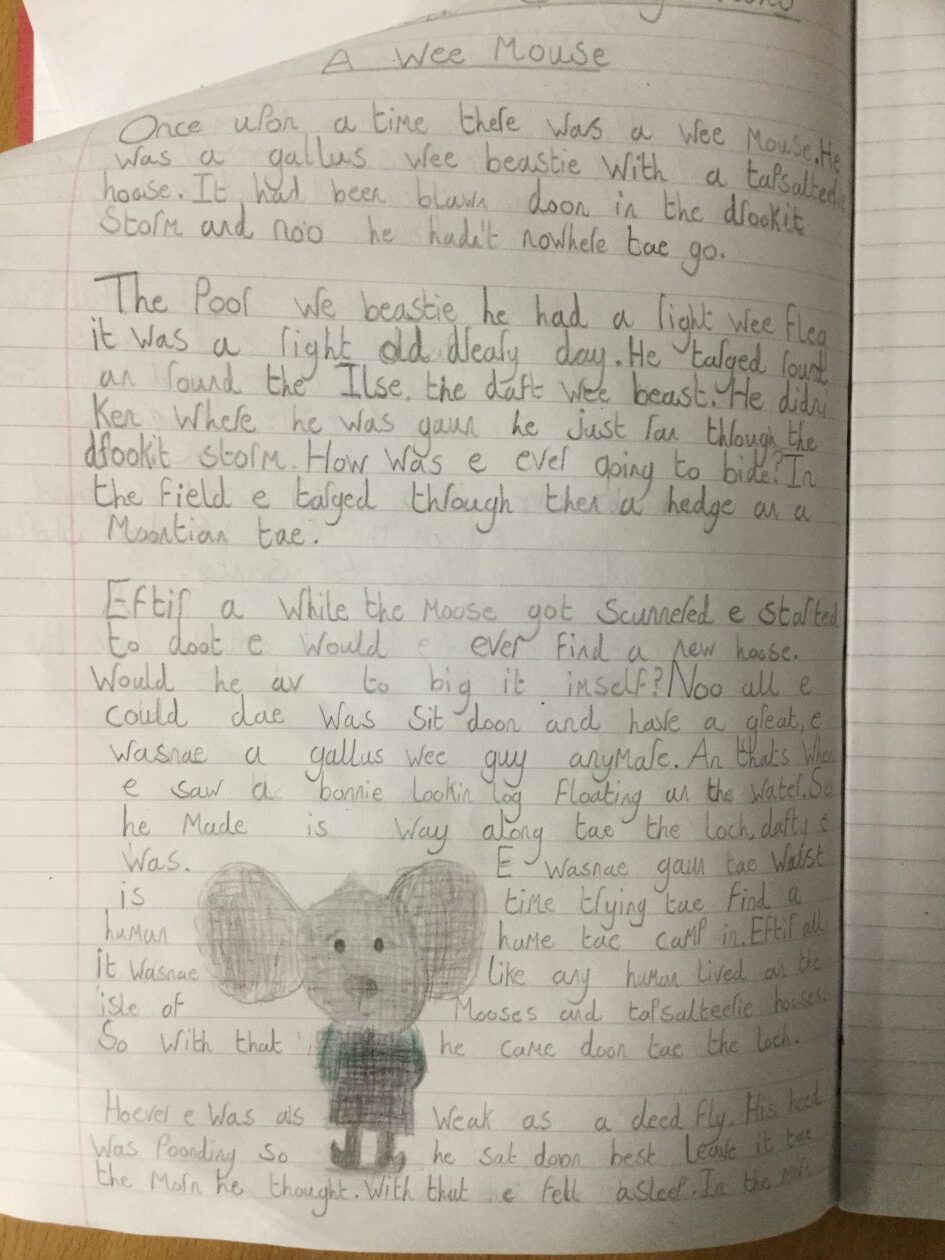 A Wee Mouse
Once upon a time there was a wee mouse. He
was a gallus wee beastie with a tapsalteerie
hoose. It had been blawn doon in the drookit
storm and noo he hadn't nowhere tae go.
The Poor we beastie he had a right wee fleg
it was a right old dreary day. He targed round
an round the Ilse, the daft wee beast. He didni
Ken where he was gaun he just ran through the
drookit storm. How was e ever going to bide? In
the field e targed through then a hedge an a
Moontian tae.
Eftir a while the Moose got scunnered e started
to doot e would ever find a new hoose.
Would he av to big it imself? Noo all e
could dae was sit doon and have a great, e
wasnae a gallus wee guy anymare. An thats when
e saw a bonnie lookin log floating un the water. So
he made is way along tae the loch, dafty e
was. E wasnae gaun tae watst
is time trying tae find a
human hame tae camp in. Eftir all
it wasnae like any human lived on the
isle of Mooses and tapsalteerie hooses.
So with that he came doon tae the loch.
Hoever e was als weak as a deed fly. His heed
was poonding so he sat doon best leave it tae
the Morn he thought. With that e fell asleep. In the morn